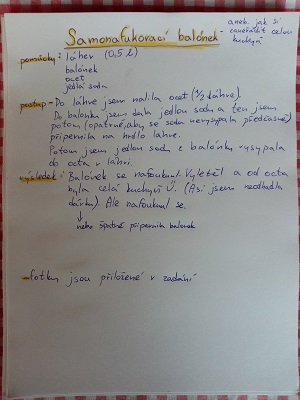 Samonafukovací balónek - aneb jak si
zaneřádit celou
kuchyni
pomůcky: láhev (0,5 l)
balónek
ocet
jedlá soda
postup - Do láhve jsem nalila ocet (1/2 láhve).
Do balónku jsem dala jedlou sodu a ten jsem
potom (opatrně, aby se soda nevysypala předčasně)
připevnila na hrdlo láhve.
Potom jsem jedlou sodu z balónku vysypala
do octa v láhvi.
výsledek: Balónek se nafouknul. Vyletěl a od octa
byla celá kuchyň Ü. (Asi jsem neodhadla
dávku). Ale nafouknul se.
↓
nebo špatně připevnila balónek
- fotky jsou přiložené v zadání